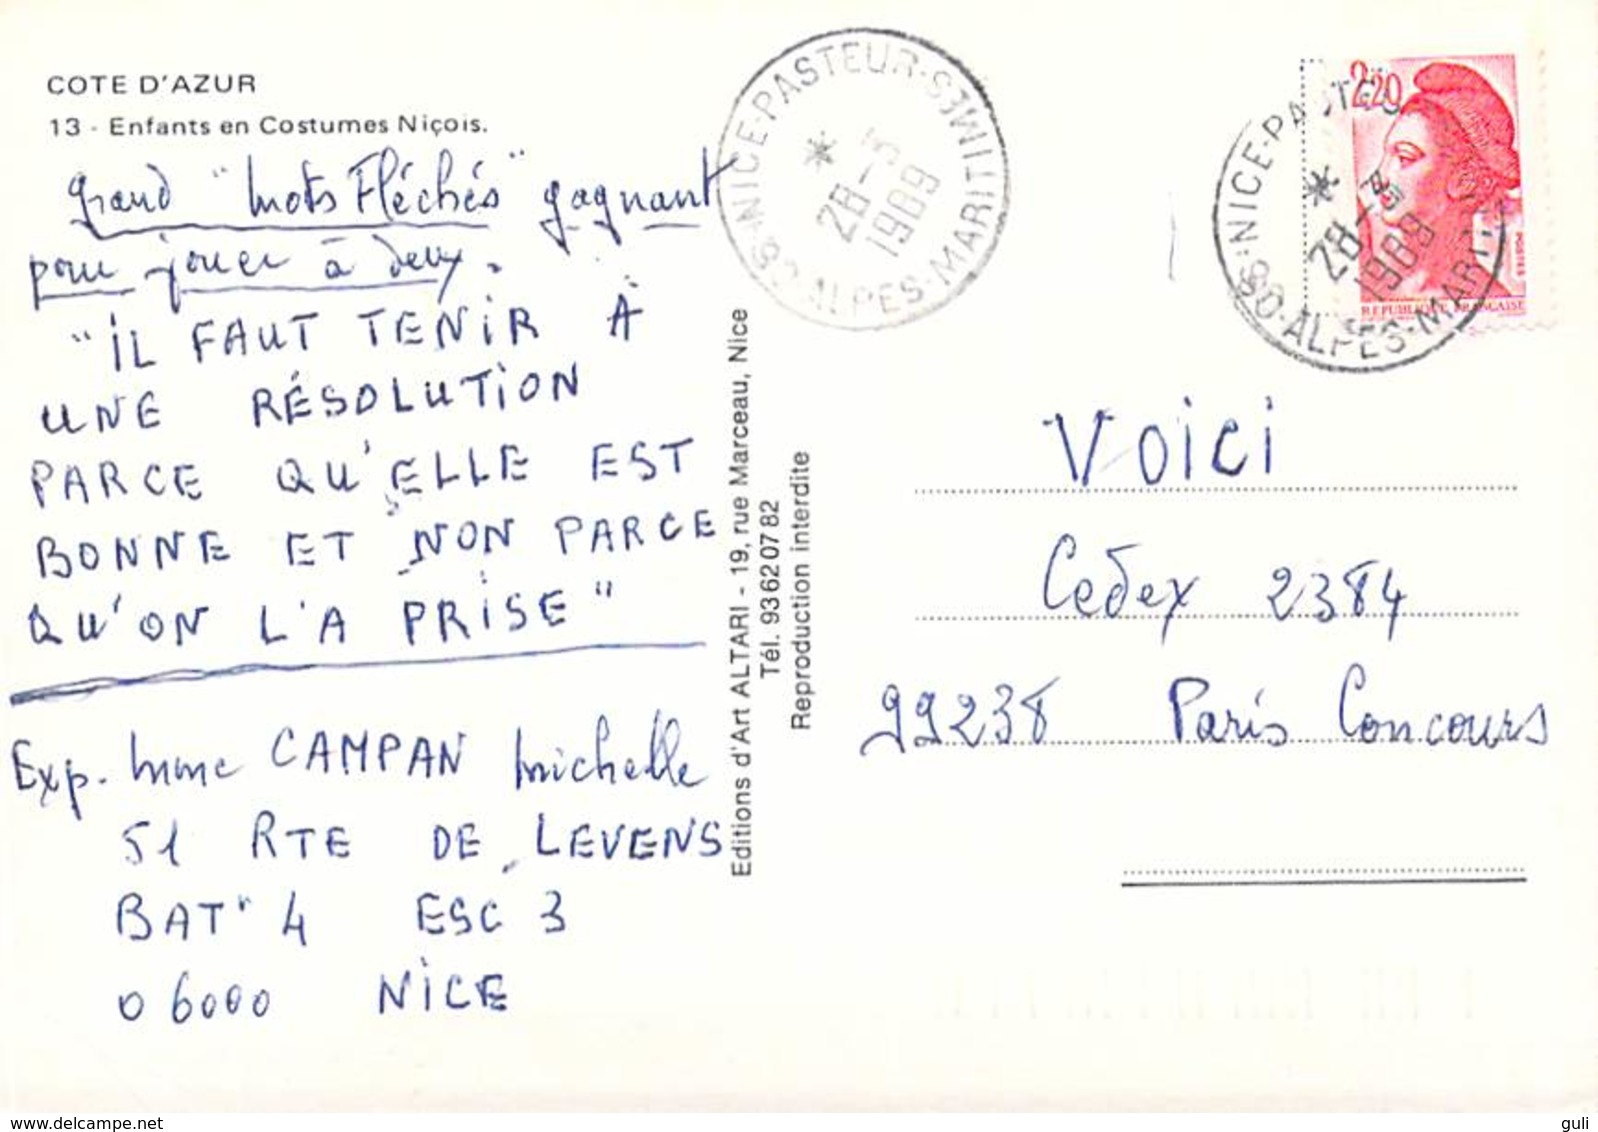 COTE D'AZUR
13 - Enfants en Costumes Niçois.
Grand "Mots Fléchés" gagnant
pour jouer à deux.
"IL FAUT TENIR A
UNE RÉSOLUTION
PARCE QU'ELLE EST
BONNE ET NON PARCE
QU'ON L'A PRISE"
Exp. Mme CAMPAN Michelle
51 RTE DE LEVENS
BAT 4 ESC 3
06000 NICE
Editions d'Art ALTARI - 19, rue Marceau, Nice
Tél. 93 62 07 82
Reproduction interdite
NICE-PASTEUR-S3 ALPES-MARITIMES
28-3
1989
2,20
POSTES
REPUBLIQUE FRANÇAISE
NICE-PASTEUR
28-3
1989
ALPES-MARITIMES
VOICI
Cedex 2384
99238 Paris Concours
delcampe.net
guli